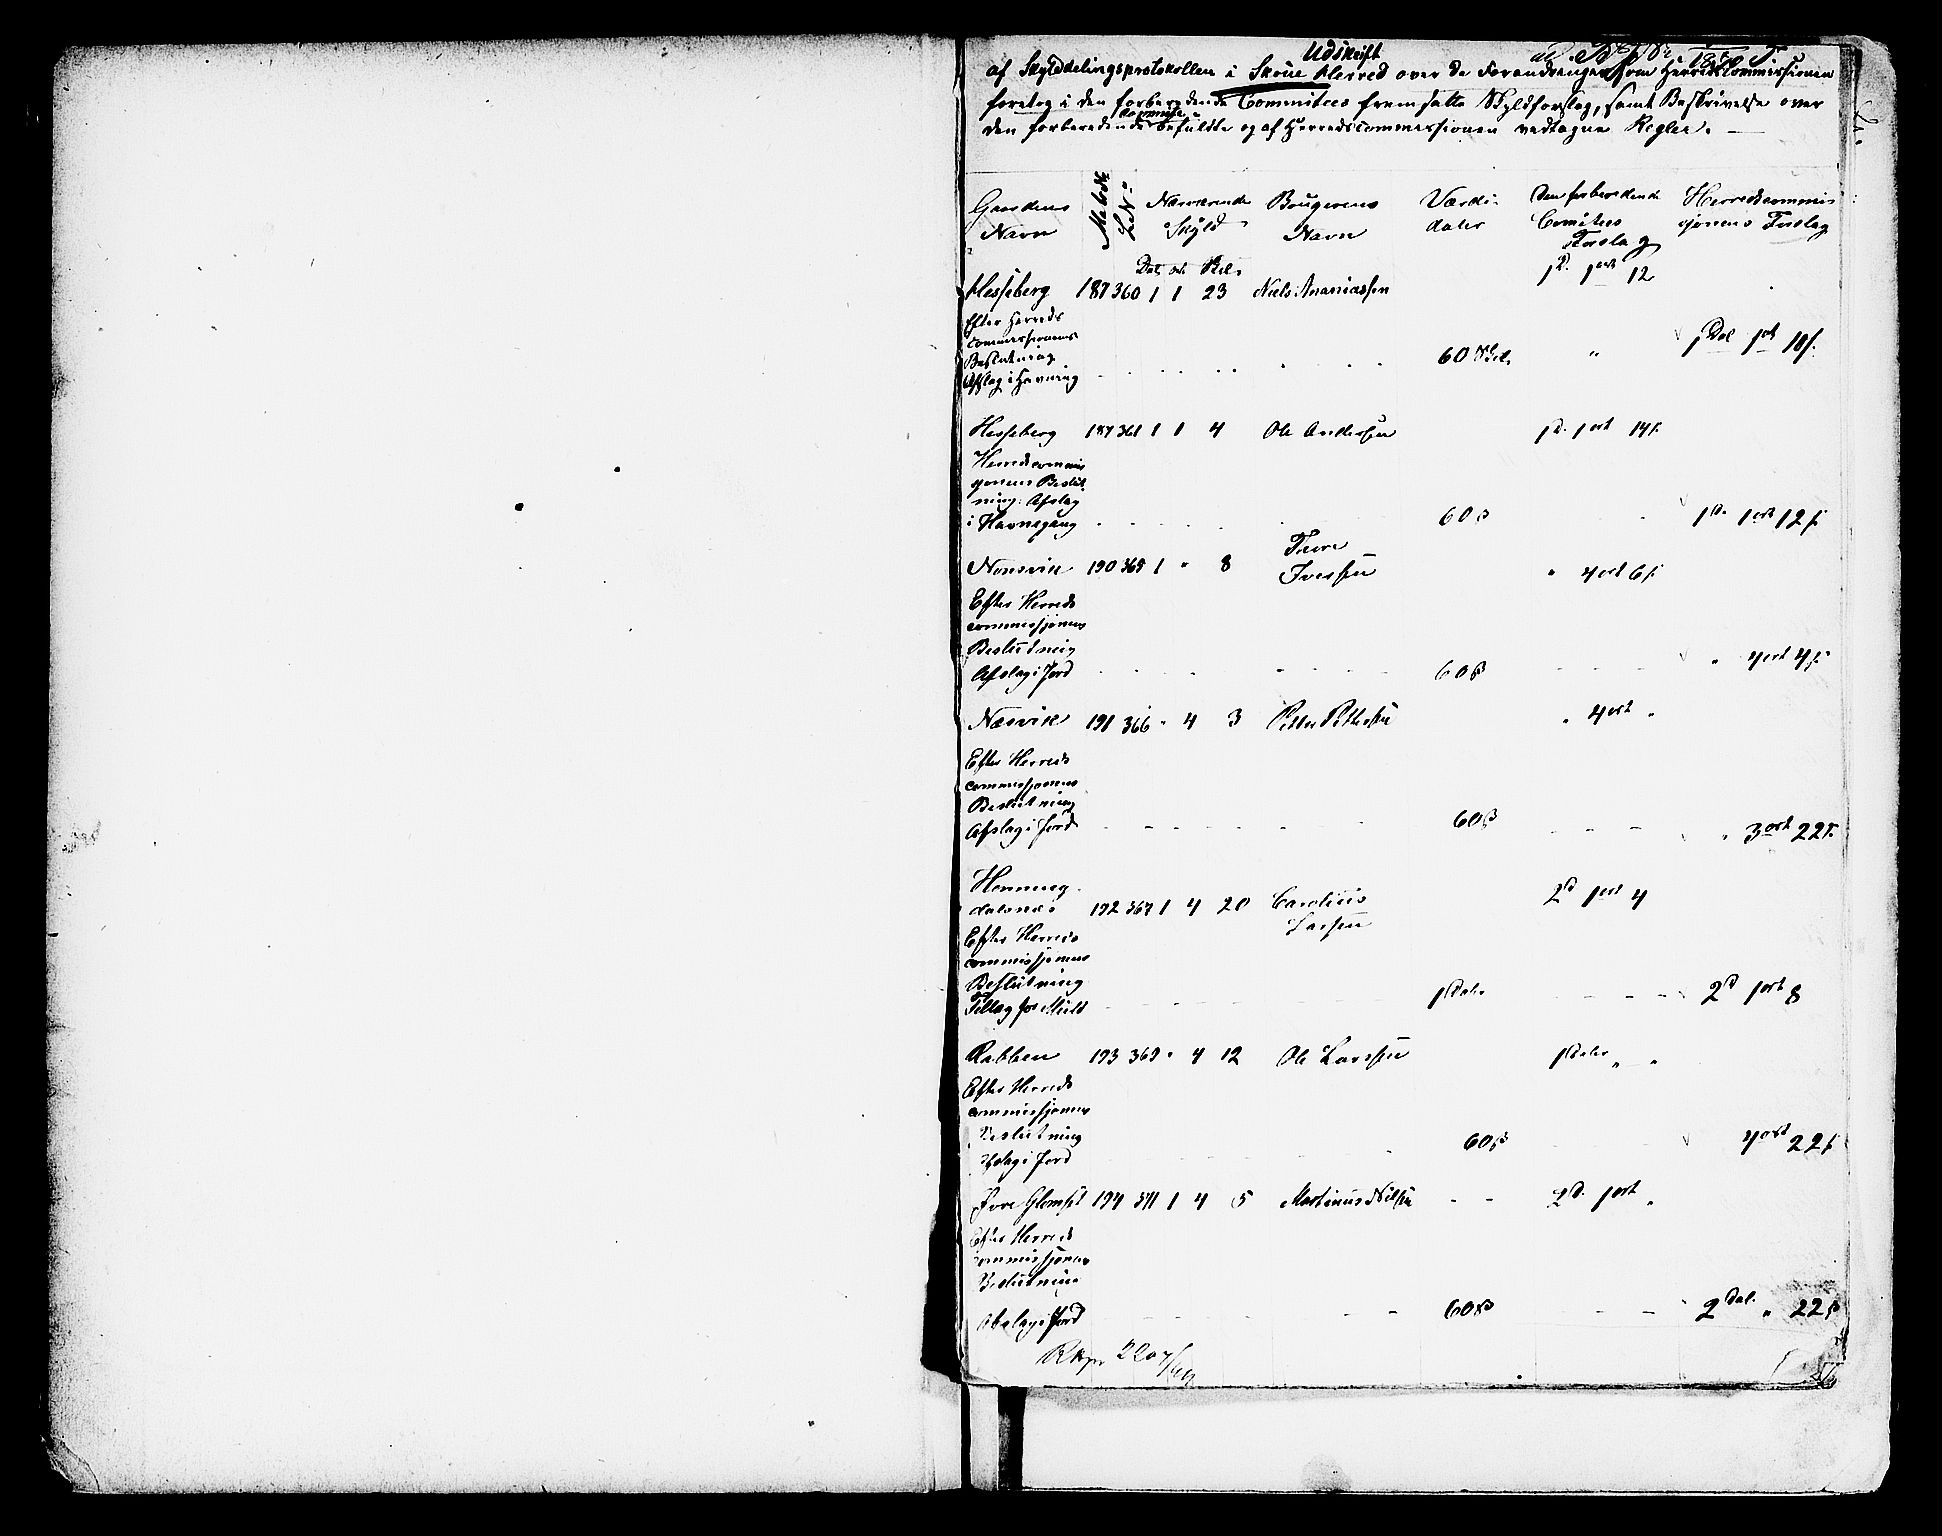 Udskrift
af Skylddelingsprotokollen i Skoue Herred over de Forandringer som Herredscommissionen
foretog i den forberedende Committees fremsatte Skyldforslag, samt Beskrivelse over
den forberedende befuldte og af Herredscommissionen vedtagne Regler.
Gaardens Navn Matr. No L No Nærværende Skyld Brugerens Navn Værdi daler Den forberedende Comitees Forslag Herredscommissjonens Forslag
Dal. ort Skl.
Hesseberg 187 360 1 1 23 Niels Ananiassen 1 D. 1 ort 12
Efter Herreds
commissionens
Beslutning
Afslag i Havning 60 Skl. " 1 Dal 1 ort 10 s.
Hesseberg 187 361 1 1 4 Ole Andersen 1 D. 1 ort 14 s.
Herredscommis
sjonens Beslut
ning: Afslag
i Havnegang 60 s 1 D. 1 ort 12 s.
Nonsvik 190 365 1 " 8 Iversen " 4 ort 6 s.
Efter Herreds
commissjonens
Beslutning
Afslag i Jord 60 s " 4 ort 4 s.
Næsvik 191 366 " 4 3 Petter Pettersen " 4 ort "
Efter Herreds
commissjonens
Beslutning
Afslag i Jord 60 s " 3 ort 22 s.
Henning
dalsnes 192 367 1 4 20 Carolius Larsen 2 d 1 ort 4
Efter Herreds
commissjonens
Beslutning
Tillæg for Muld 1 Daler 2 d 1 ort 8
Rabben 193 369 " 4 12 Ole Larsen 1 Daler " "
Efter Herreds
commissjonens
Beslutning
Afslag i Jord 60 s 4 ort 22 s.
Øvre Glomset 194 371 1 4 5 Martinus Nilsen 2 D. 1 ort "
Efter Herreds
commissjonens
Beslutning
Afslag i Jord 60 s 2 Dal. " 22 s